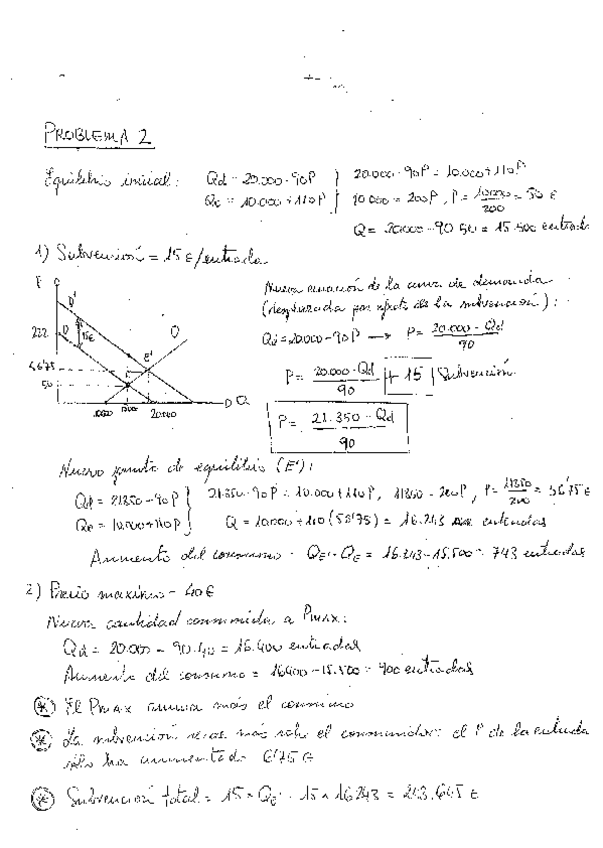 PROBLEMA 2
Equilibrio inicial: Qd = 20.000 - 90P } 20.000 - 90P = 10.000 + 110P
Qo = 10.000 + 110P } 10.000 = 200P, P = 10.000/200 = 50 €
Q = 20.000 - 90·50 = 15.500 entradas
1) Subvención = 15 €/entrada
Nueva ecuación de la curva de demanda
(desplazada por efecto de la subvención):
Qd = 20.000 - 90P → P = (20.000 - Qd)/90
P = (20.000 - Qd)/90 + 15 Subvención
P = (21.350 - Qd)/90
D'
D
15€
O
E'
E
222
56'75
50
10.000
15.500
20.000
Q
Nuevo punto de equilibrio (E'):
Qd = 21.350 - 90P } 21.350 - 90P = 10.000 + 110P, 11350 = 200P, P = 11350/200 = 56'75 €
Qo = 10.000 + 110P } Q = 10.000 + 110 (56'75) = 16.243 entradas
Aumento del consumo = QE' - QE = 16.243 - 15.500 = 743 entradas
2) Precio máximo = 40€
Nueva cantidad consumida a Pmax:
Qd = 20.000 - 90·40 = 16.400 entradas
Aumento del consumo = 16400 - 15.500 = 900 entradas
* El Pmax aumenta más el consumo
* La subvención recae más sobre el consumidor: el P de la entrada
sólo ha aumentado 6'75 €
* Subvención total = 15 × QE' = 15 × 16243 = 243.645 €